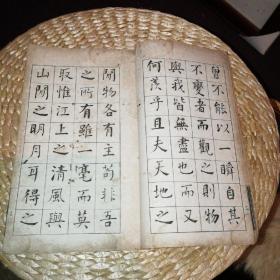 曾不能以一瞬自其
不變者而觀之則物
與我皆無盡也而又
何羨乎且夫天地之
間物各有主茍非吾
之所有雖一毫而莫
取惟江上之清風與
山間之明月耳得之